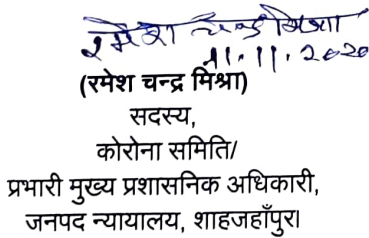 रमेश चन्द्र मिश्रा
11.11.2020
(रमेश चन्द्र मिश्रा)
सदस्य,
कोरोना समिति/
प्रभारी मुख्य प्रशासनिक अधिकारी,
जनपद न्यायालय, शाहजहाँपुर।